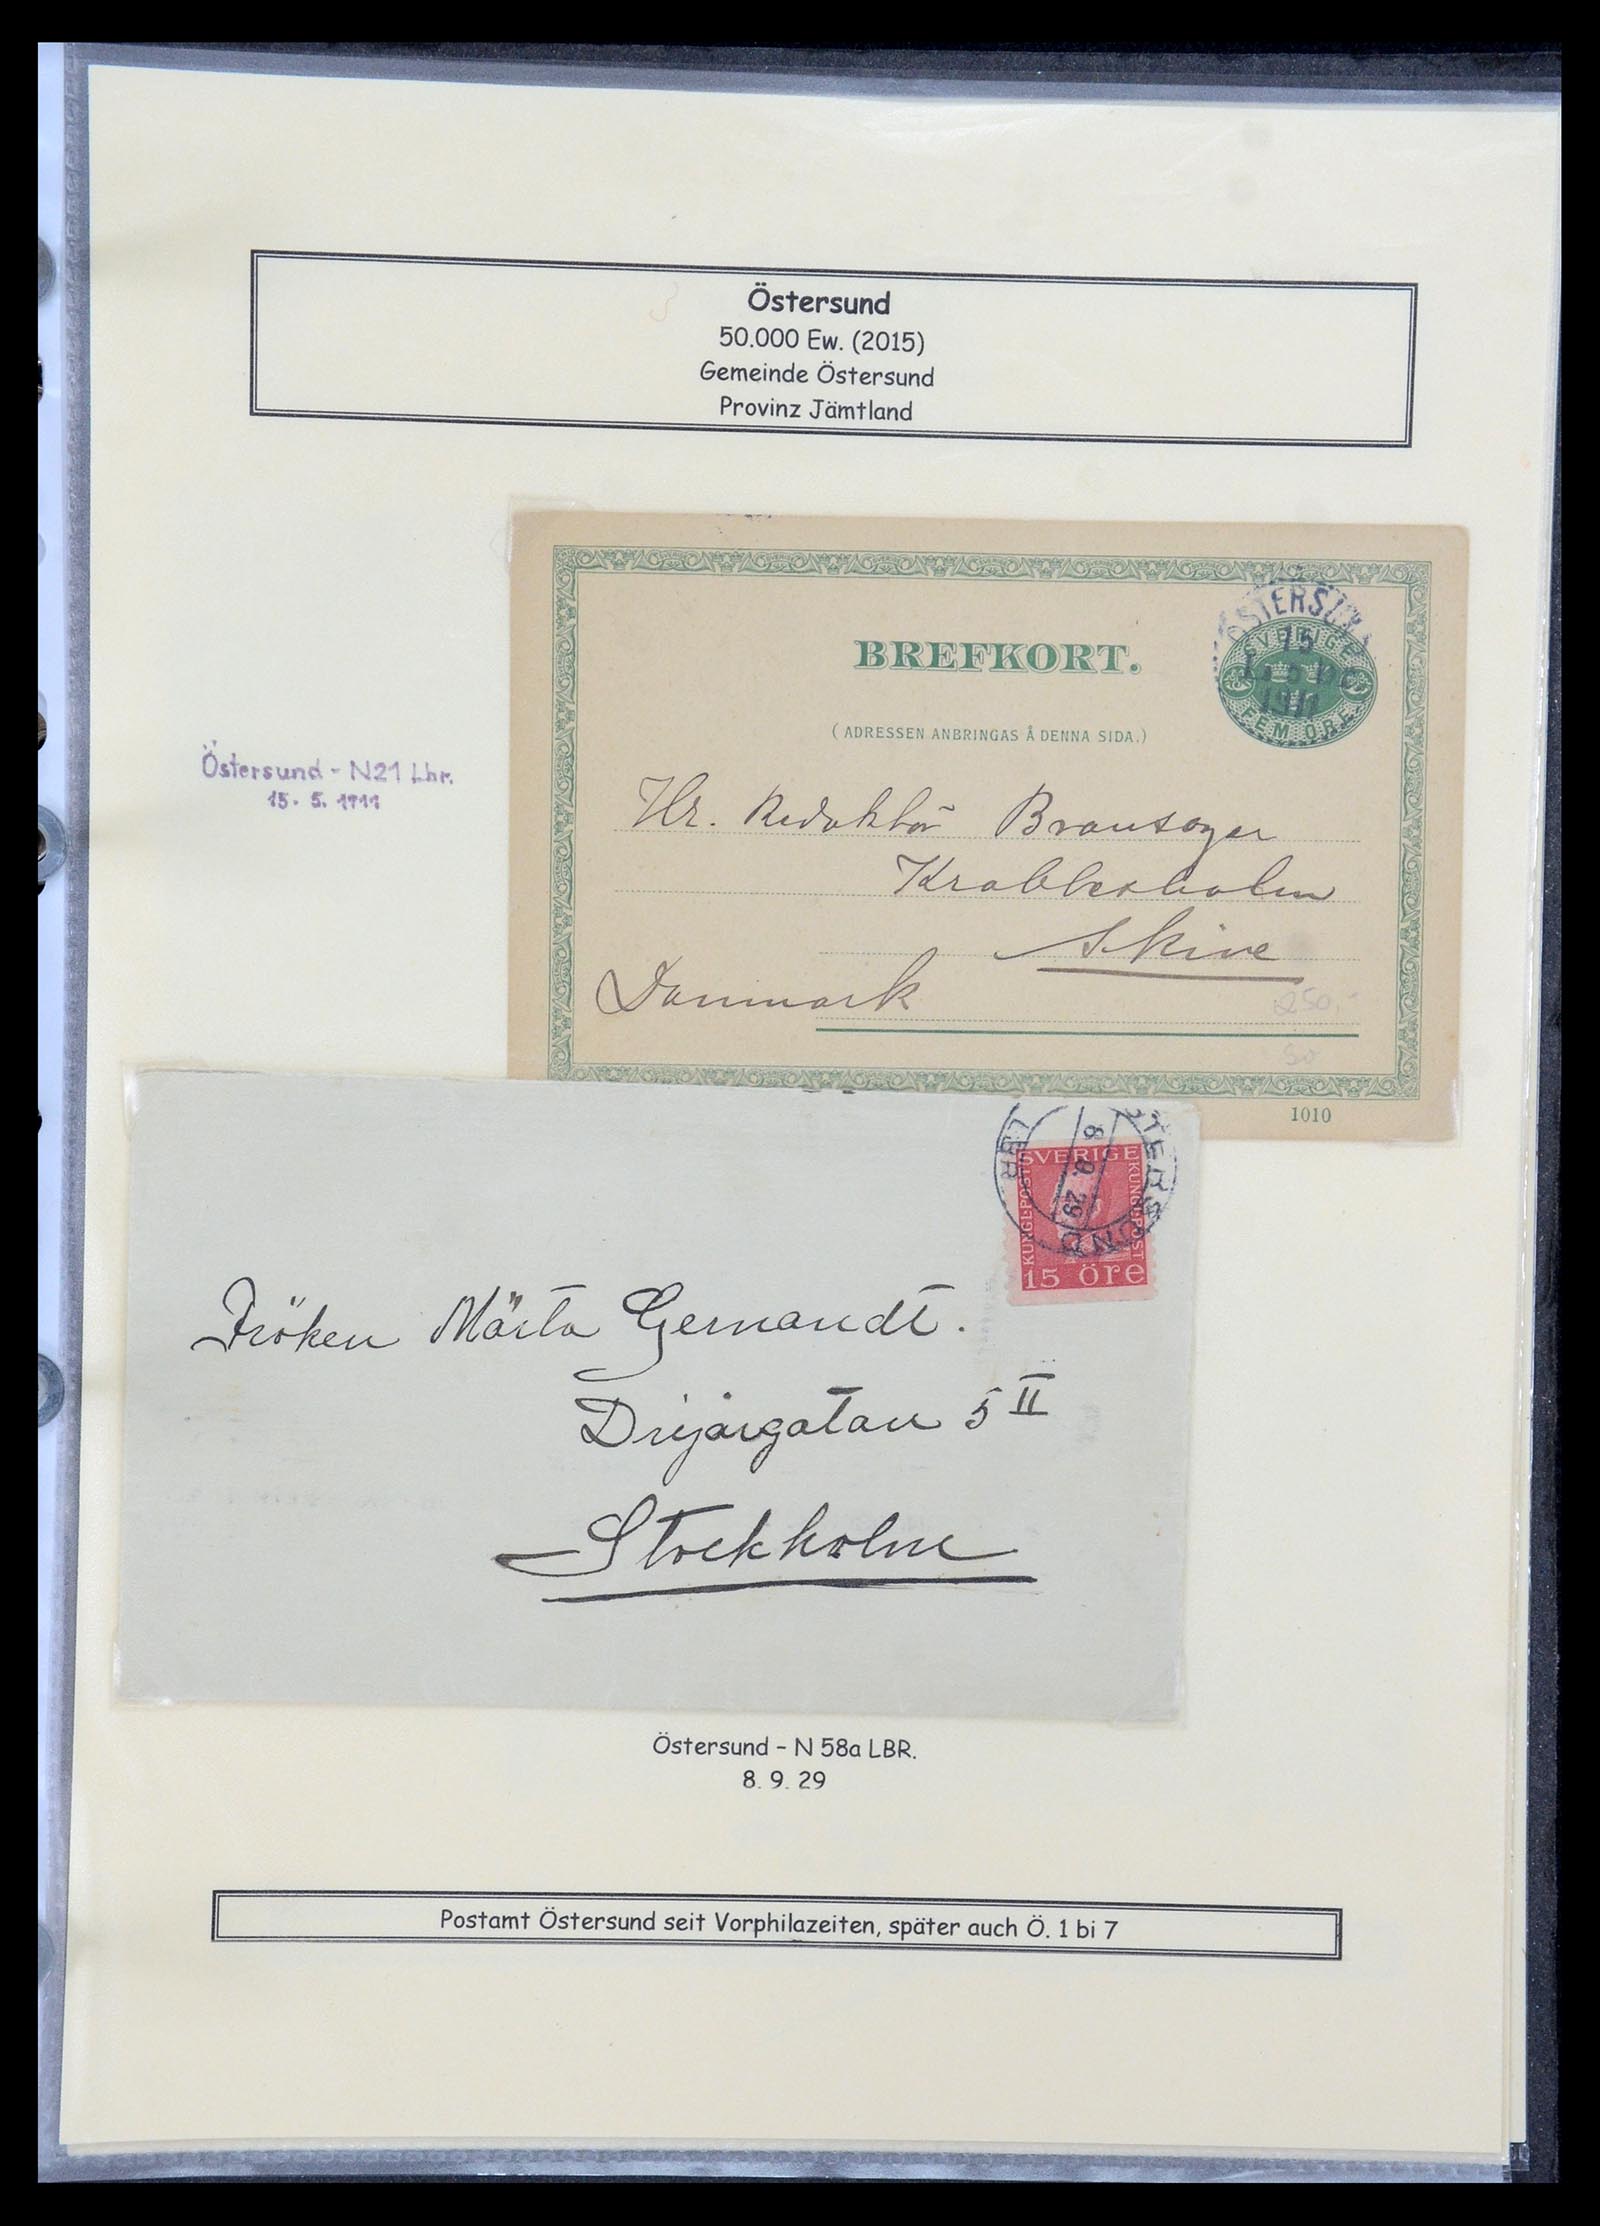 Östersund
50.000 Ew. (2015)
Gemeinde Östersund
Provinz Jämtland
BREFKORT.
(ADRESSEN ANBRINGAS Å DENNA SIDA.)
SVERIGE
FEM ÖRE
15
1911
Östersund - N21 Lbr.
15. 5. 1911
Hr. Redaktör
Skive
Danmark
250,-
1010
TERSUND
LBR
29
SVERIGE
KUNGL·POST
KUNGL·POST
15 öre
Fröken Märta Gernandt.
Drejargatan 5 II
Stockholm
Östersund – N 58a LBR.
8. 9. 29
Postamt Östersund seit Vorphilazeiten, später auch Ö. 1 bi 7